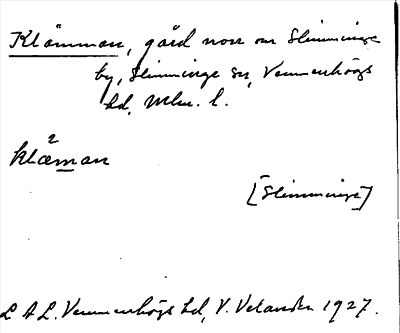 Klämman, gård norr om Slimminge
by, Slimminge sn, Vemmenhögs
hd, Mlm. l.
klæ²man
[Slimminge]
L A L. Vemmenhögs hd, V. Velander 1927.